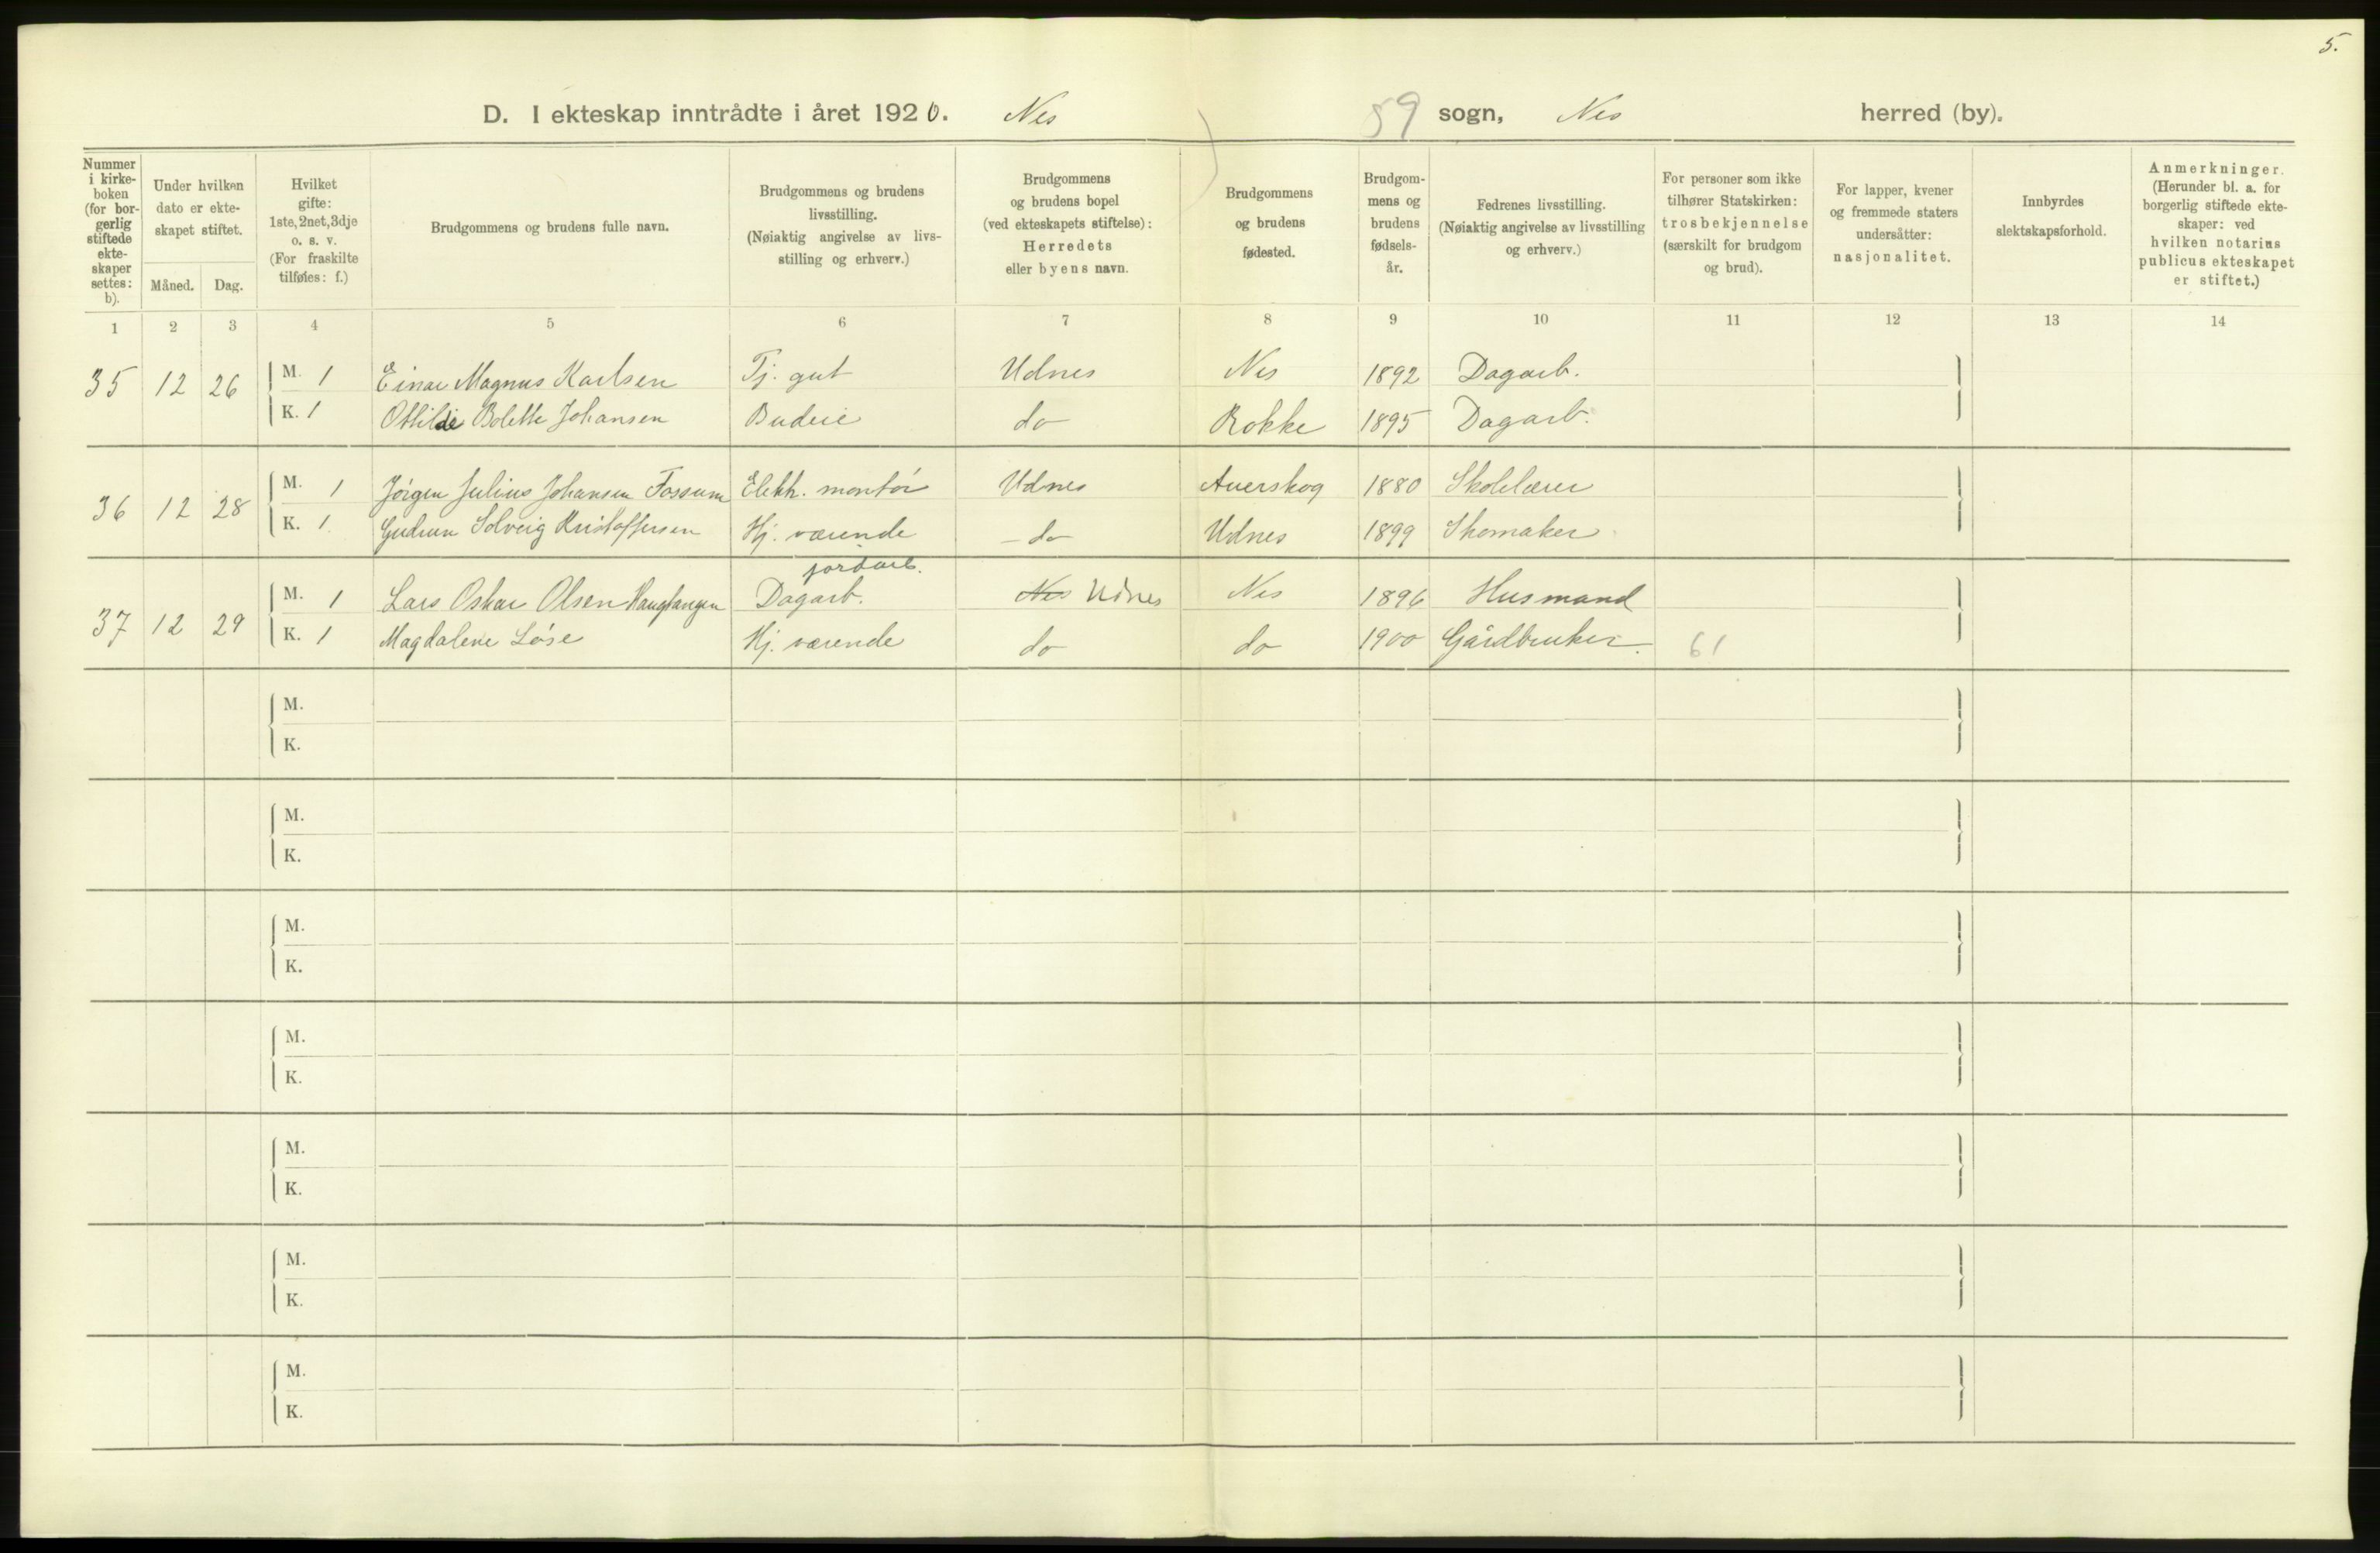 5.
D. I ekteskap inntrådte i året 1920. Nes 59 sogn, Nes herred (by).
Nummer i kirke- boken (for bor- gerlig stiftede ekte- skaper settes: b).
Under hvilken dato er ekte- skapet stiftet.
Måned. Dag.
Hvilket gifte: 1ste, 2net, 3dje o. s. v. (For fraskilte tilføies: f.)
Brudgommens og brudens fulle navn.
Brudgommens og brudens livsstilling. (Nøiaktig angivelse av livs- stilling og erhverv.)
Brudgommens og brudens bopel (ved ekteskapets stiftelse): Herredets eller byens navn.
Brudgommens og brudens fødested.
Brudgom- mens og brudens fødsels- år.
Fedrenes livsstilling. (Nøiaktig angivelse av livsstilling og erhverv.)
For personer som ikke tilhører Statskirken: trosbekjennelse (særskilt for brudgom og brud).
For lapper, kvener og fremmede staters undersåtter: nasjonalitet.
Innbyrdes slektskapsforhold.
Anmerkninger. (Herunder bl. a. for borgerlig stiftede ekte- skaper: ved hvilken notarius publicus ekteskapet er stiftet.)
1 2 3 4 5 6 7 8 9 10 11 12 13 14
35 12 26 M. 1 Einar Magnus Karlsen Tj. gut Udnes Nes 1892 Dagarb.
K. 1 Ottilde Bolette Johansen Budeie do Rokke 1895 Dagarb.
36 12 28 M. 1 Jørgen Julius Johansen Fossum Elektr. montør Udnes Auerskog 1880 Skolelærer
K. 1 Gudrun Solveig Kristoffersen Hj. værende do Udnes 1899 Skomaker
jordarb.
37 12 29 M. 1 Lars Oskar Olsen Haugfangen Dagarb. Nes Udnes Nes 1896 Husmand
K. 1 Magdalene Løse Hj. værende do do 1900 Gårdbruker. 61
M.
K.
M.
K.
M.
K.
M.
K.
M.
K.
M.
K.
M.
K.